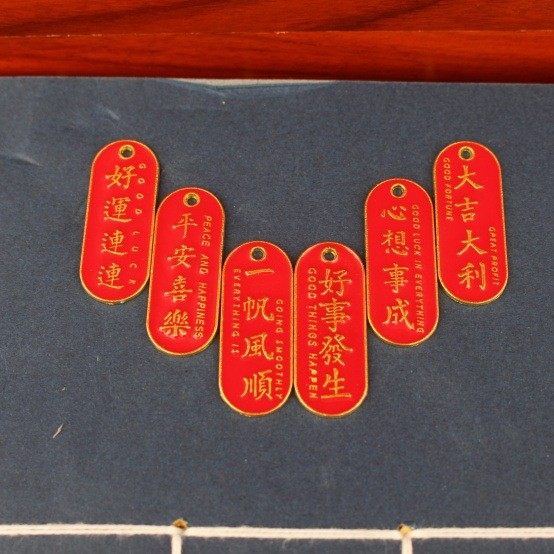 好運連連
GOOD LUCK
平安喜樂
PEACE AND HAPPINESS
一帆風順
EVERYTHING IS
GOING SMOOTHLY
好事發生
GOOD THINGS HAPPEN
心想事成
GOOD LUCK IN EVERYTHING
大吉大利
GOOD FORTUNE
GREAT PROFIT